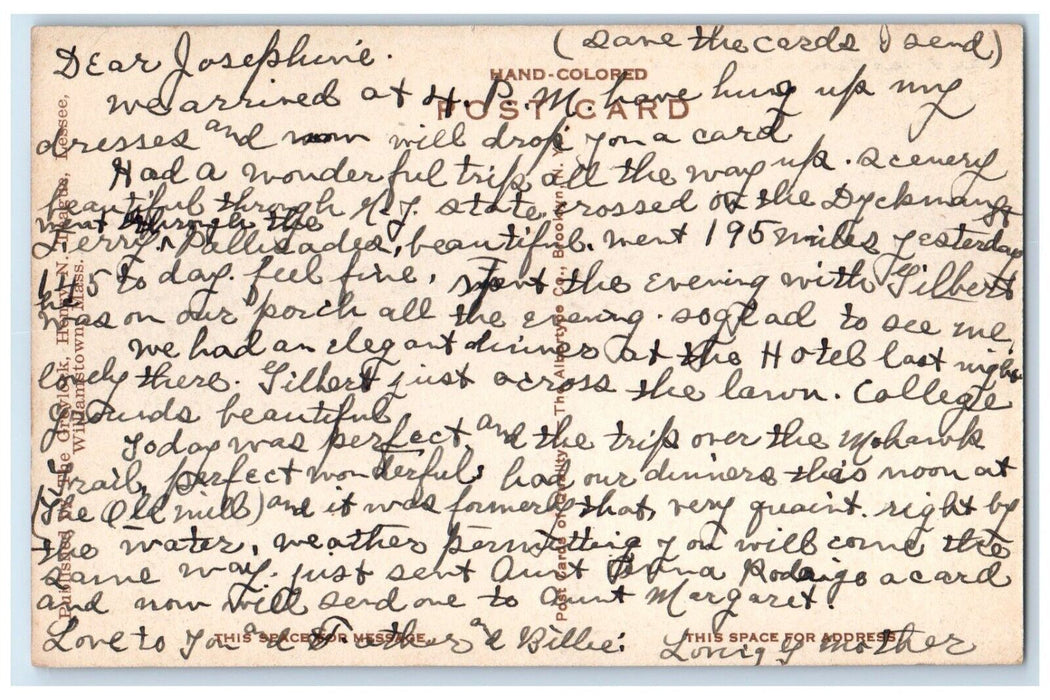 (save the cards I send)
Dear Josephine.
HAND-COLORED
POST CARD
we arrived at 4. P.M. have hung up my
dresses and now will drop you a card
Had a wonderful trip all the way up. scenery
beautiful through N.J. state crossed on the Dyckman St
went through the
Ferry, Pallisades, beautiful. went 195 miles yesterday
145 to day. feel fine, spent the evening with Gilbert
was on our porch all the evening. so glad to see me,
we had an elegant dinner at the Hotel last night
lovely there. Gilbert just across the lawn. College
grounds beautiful
Today was perfect and the trip over the Mohawk
Trail, perfect wonderful: had our dinners this noon at
(The Old mill) and it was formerly that, very quaint. right by
the water, weather permitting you will come the
same way. just sent Aunt Anna Rodrigo a card
and now will send one to Aunt Margaret.
Love to You and Father and Billie:
Loving Mother
THIS SPACE FOR MESSAGE
THIS SPACE FOR ADDRESS
Published by The Greylock, Henry N. Teague, Lessee,
Williamstown, Mass.
Post Cards of Quality. The Albertype Co., Brooklyn, N. Y.